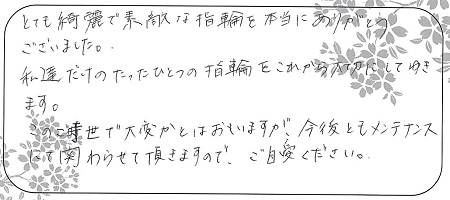 とても綺麗で素敵な指輪を本当にありがとう
ございました。
私達だけのたったひとつの指輪をこれから大切にしてゆき
ます。
このご時世で大変かとはおもいますが、今後ともメンテナンス
にて関わらせて頂きますので、ご自愛ください。